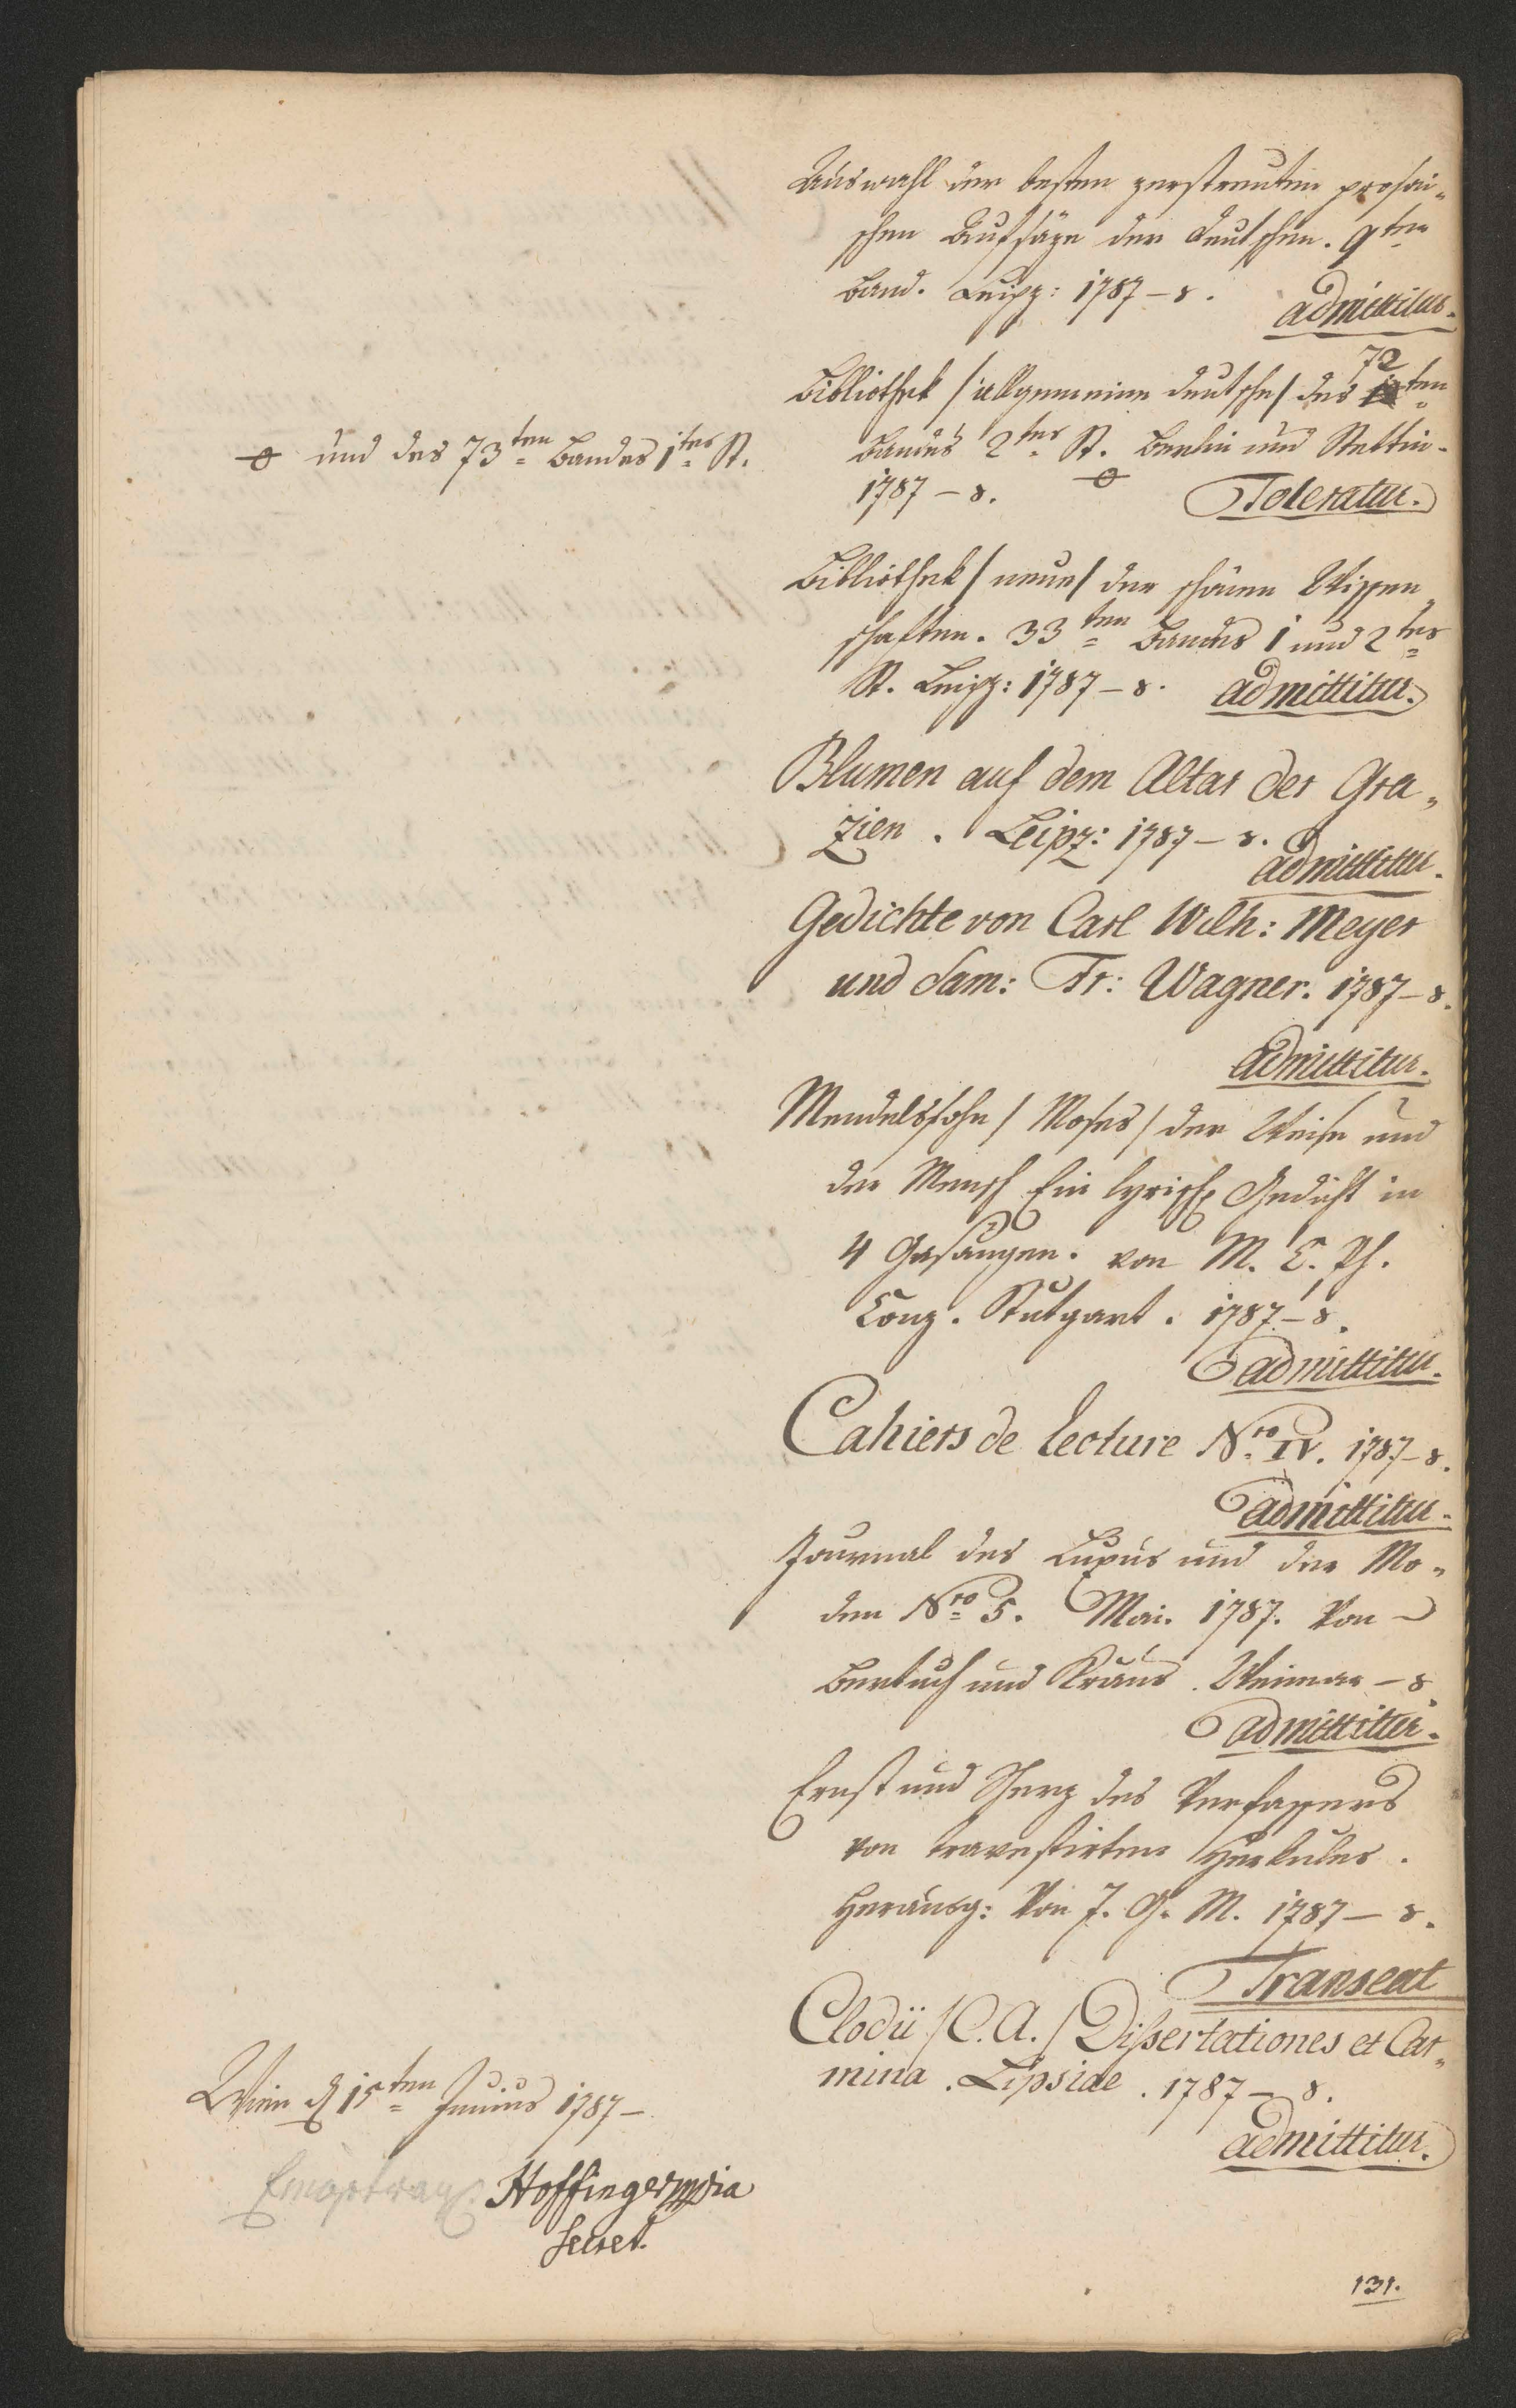 Auswahl der besten zerstreuten prosai-
schen Aufsäze der Deutschen. 9ten
Band. Leipz: 1787 – 8.
admittitur.
Bibliothek / allgemeine deutsche / des 72ten
Bandes 2tes St. Berlin und Stettin.
1787 – 8.
Toleratur.
und des 73ten Bandes 1tes St.
Bibliothek / neue / der schönen Wissen-
schaften. 33ten Bandes 1 und 2tes
St. Leipz: 1787 – 8. admittitur.
Blumen auf dem Altar der Gra-
zien. Leipz: 1787 – 8.
admittitur.
Gedichte von Carl Wilh: Meyer
und Sam: Fr: Wagner. 1787 – 8.
admittitur.
Mendelssohn / Moses / der Weise und
der Mensch Ein lyrisch Gedicht in
4 Gesängen. von M. C. Ph.
Conz. Stutgart. 1787 – 8.
admittitur.
Cahiers de lecture Nro IV. 1787 – 8.
admittitur.
Journal des Luxus und der Mo-
den Nro 5. Mai. 1787. Von
Bertuch und Kraus. Weimar – 8
admittitur.
Ernst und Scherz des Verfassers
von travestirten Herkules.
Herausg: Von J. G. M. 1787 – 8.
Transeat
Clodii / C. A. / Dissertationes et Car-
mina. Lipsiae. 1787 – 8.
admittitur.
Wien d 15ten Junius 1787 –
Hoffinger mpia
Secret.
131.